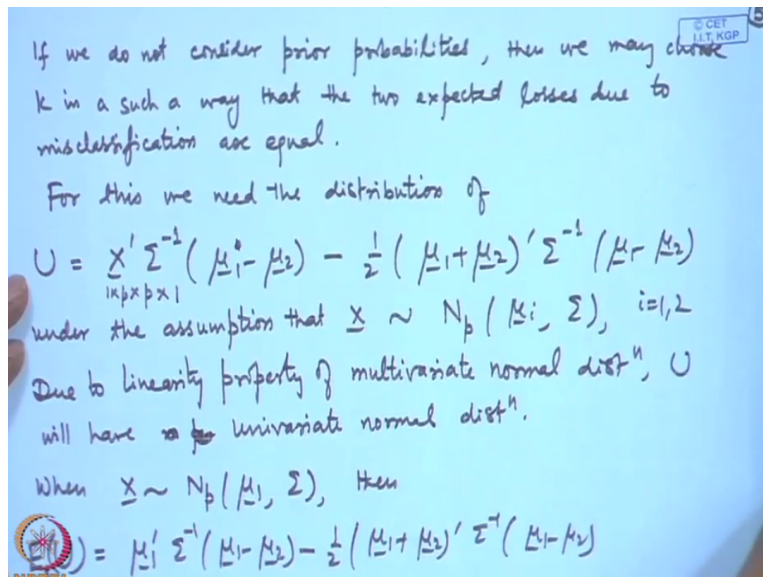 © CET
I.I.T, KGP
5
If we do not consider prior probabilities, then we may choose
k in a such a way that the two expected losses due to
misclassification are equal.
For this we need the distribution of
U = x' Σ⁻¹ (μ₁ - μ₂) - ½ (μ₁ + μ₂)' Σ⁻¹ (μ₁ - μ₂)
1×p×p×1
under the assumption that x ~ Nₚ (μᵢ, Σ), i=1,2
Due to linearity property of multivariate normal distⁿ, U
will have univariate normal distⁿ.
When x ~ Nₚ(μ₁, Σ), then
) = μ₁' Σ⁻¹(μ₁ - μ₂) - ½ (μ₁ + μ₂)' Σ⁻¹ (μ₁ - μ₂)